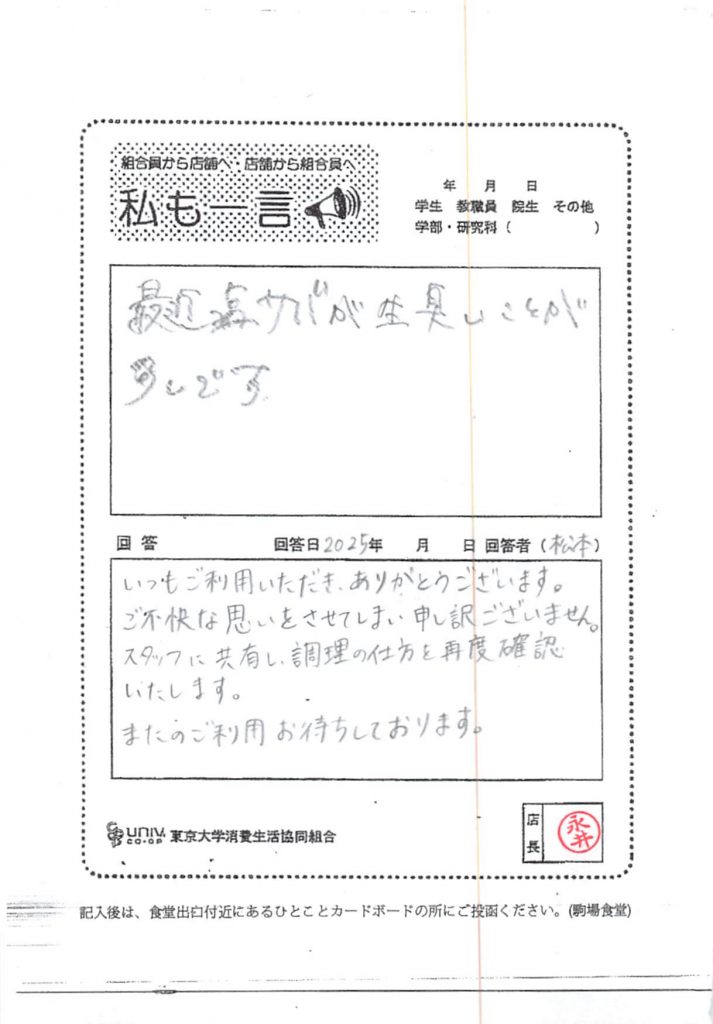 組合員から店舗へ・店舗から組合員へ
私も一言
年 月 日
学生 教職員 院生 その他
学部・研究科 ( )
最近塩サバが生臭いことが
多いです
回答 回答日2025年 月 日 回答者 (松本)
いつもご利用いただき、ありがとうございます。
ご不快な思いをさせてしまい申し訳ございません。
スタッフに共有し、調理の仕方を再度確認
いたします。
またのご利用お待ちしております。
UNIV. CO-OP 東京大学消費生活協同組合
店長 永井
記入後は、食堂出口付近にあるひとことカードボードの所にご投函ください。(駒場食堂)